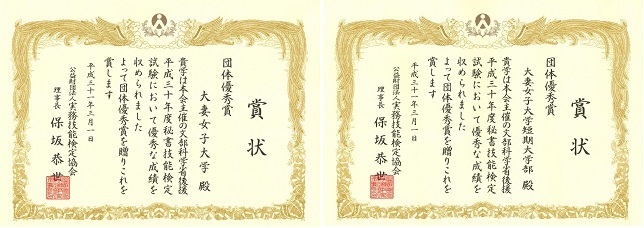 賞状
団体優秀賞
大妻女子大学 殿
貴学は本会主催の文部科学省後援
平成三十年度秘書技能検定
試験において優秀な成績を
収められました
よって団体優秀賞を贈りこれを
賞します
平成三十一年三月一日
公益財団法人実務技能検定協会
理事長 保坂恭世
賞状
団体優秀賞
大妻女子大学短期大学部 殿
貴学は本会主催の文部科学省後援
平成三十年度秘書技能検定
試験において優秀な成績を
収められました
よって団体優秀賞を贈りこれを
賞します
平成三十一年三月一日
公益財団法人実務技能検定協会
理事長 保坂恭世